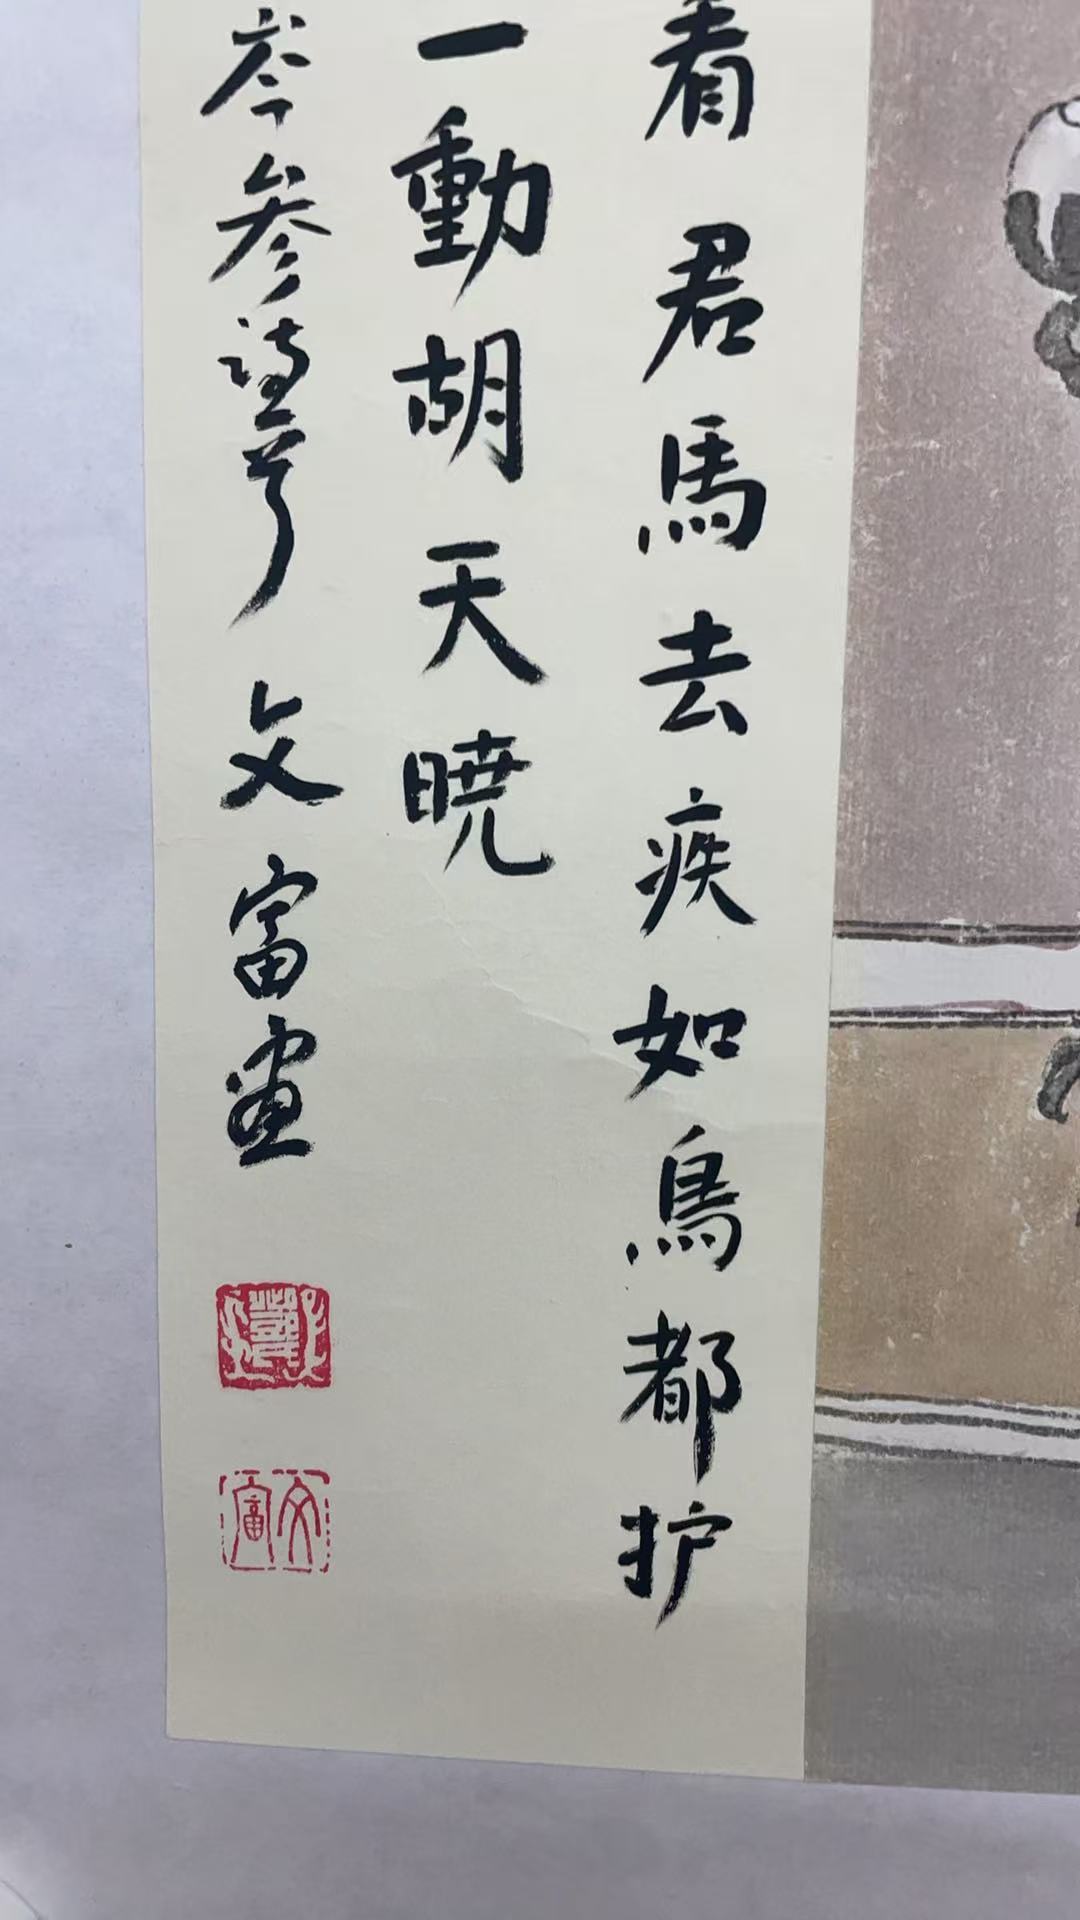 看君馬去疾如鳥都护
一動胡天暁
岑参诗 文富画
文富